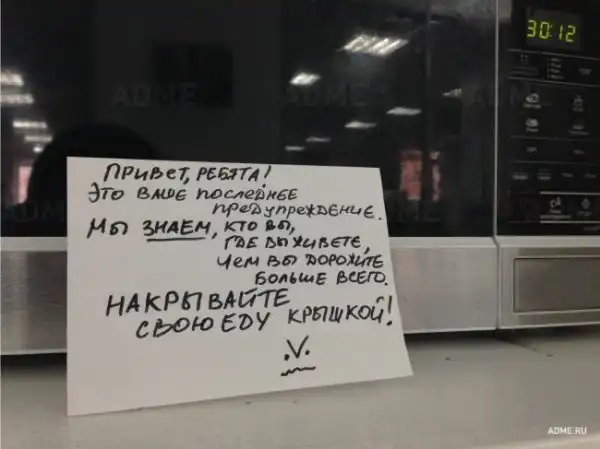 30:12
ADME.RU
ПРИВЕТ, РЕБЯТА!
ЭТО ВАШЕ ПОСЛЕДНЕЕ
ПРЕДУПРЕЖДЕНИЕ.
МЫ ЗНАЕМ, КТО ВЫ,
ГДЕ ВЫ ЖИВЕТЕ,
ЧЕМ ВЫ ДОРОЖИТЕ
БОЛЬШЕ ВСЕГО.
НАКРЫВАЙТЕ
СВОЮ ЕДУ КРЫШКОЙ!
ADME.RU